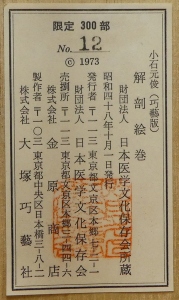 限定 300 部
No. 12
© 1973
小石元俊(巧藝版)
解剖絵巻
財団法人 日本医学文化保存会所蔵
昭和四十八年十月一日発行
発行者 〒一一三 東京都文京区本郷
財団法人 日本医学文化保存会
売捌所 〒一一三 東京都文京区本郷
株式会社 金原商店
製作者 〒一〇三 東京都中央区日本橋三ノ八ノ二
株式会社 大塚巧藝社